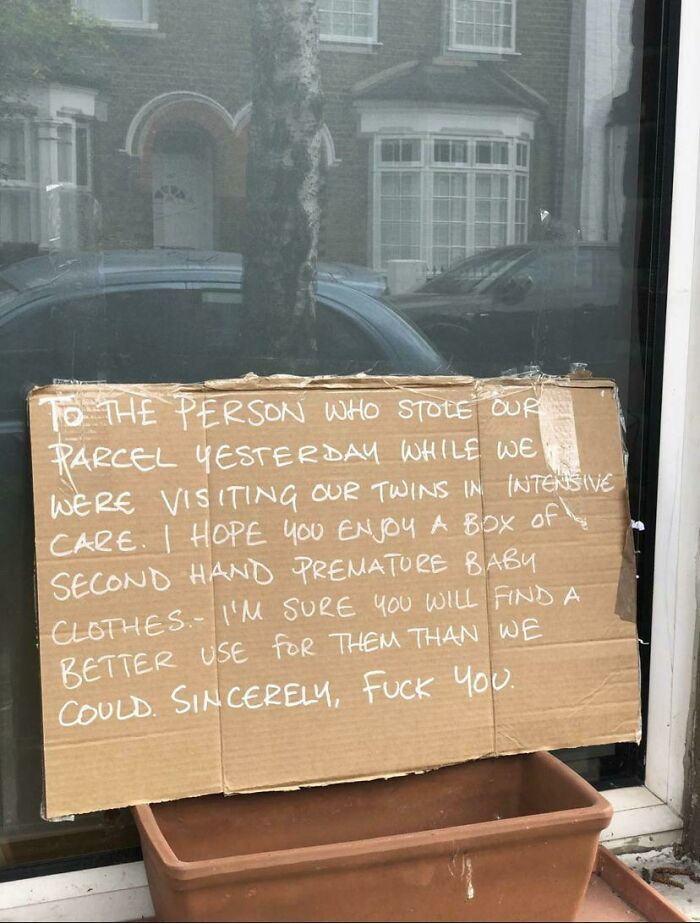 TO THE PERSON WHO STOLE OUR
PARCEL YESTERDAY WHILE WE
WERE VISITING OUR TWINS IN INTENSIVE
CARE. I HOPE YOU ENJOY A BOX OF
SECOND HAND PREMATURE BABY
CLOTHES.- I'M SURE YOU WILL FIND A
BETTER USE FOR THEM THAN WE
COULD. SINCERELY, FUCK YOU.